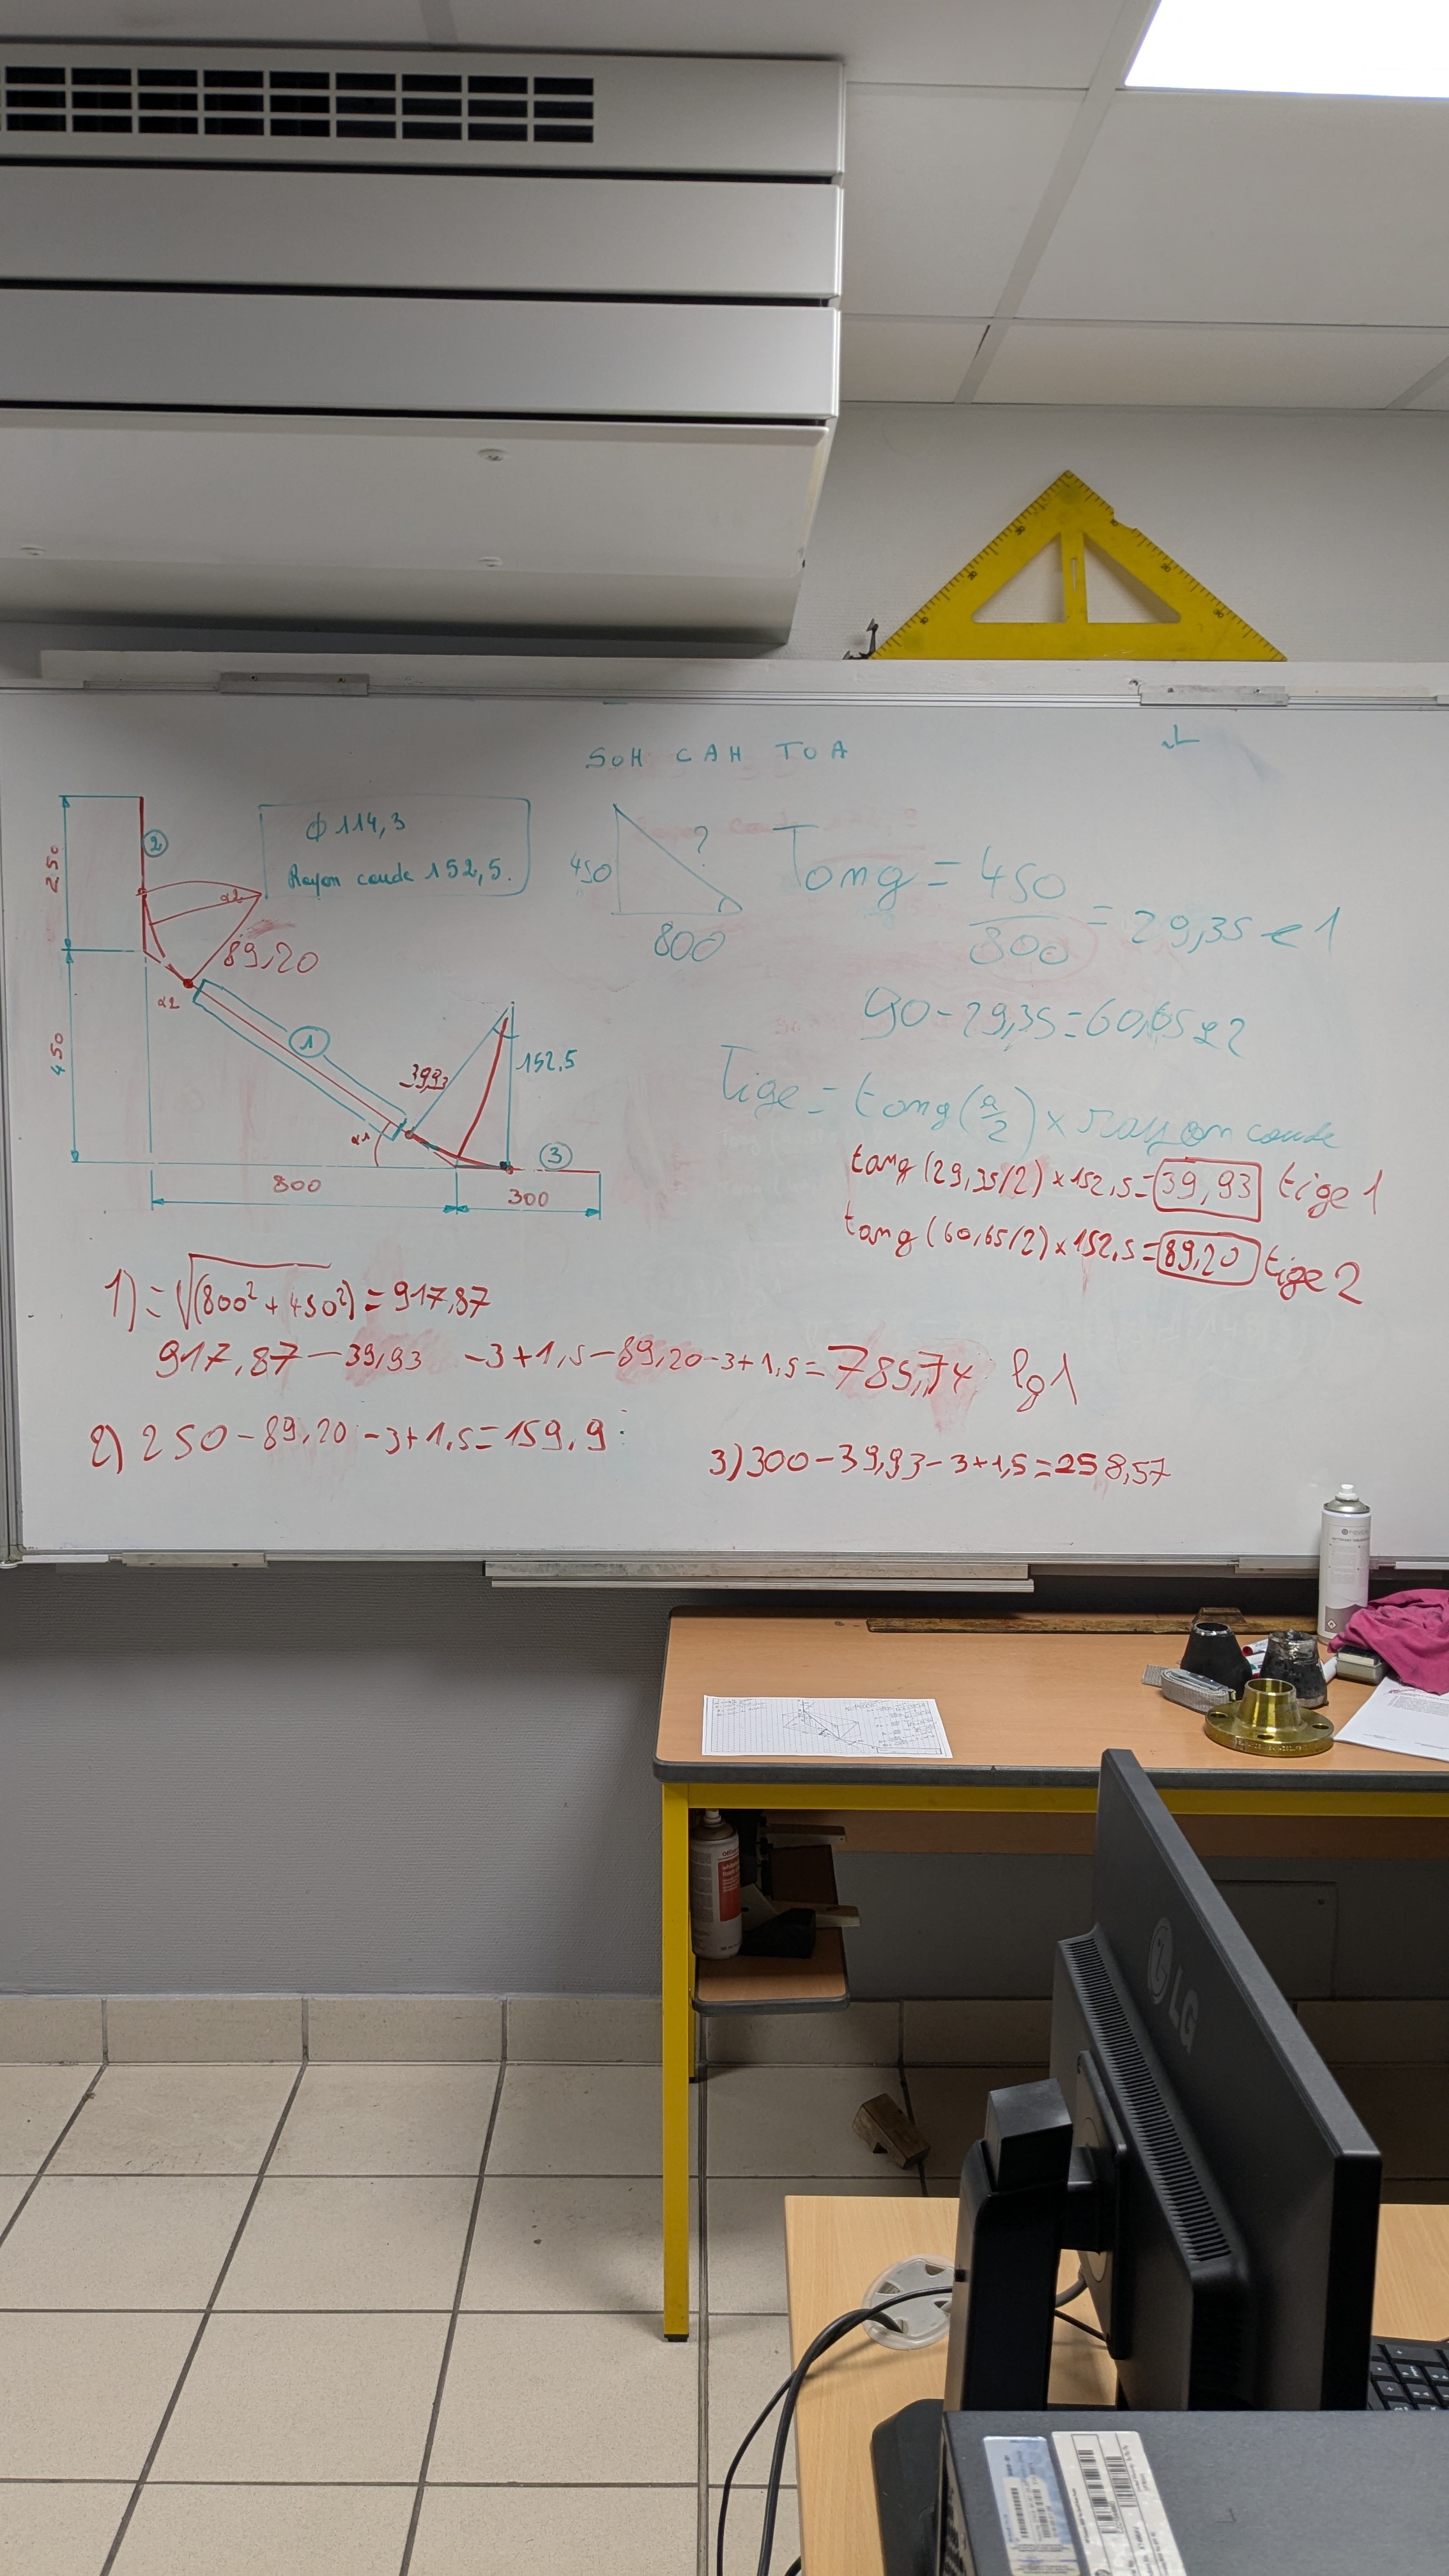 SOH CAH TOA
250
2
450
α2
89,20
α2
Φ 114,3
Rayon coude 152,5.
1
39,93
152,5
α1
3
800
300
450
?
800
Tang = 450
800
= 29,35 α 1
90 - 29,35 = 60,65 α 2
Tige = tang (α/2) × rayon coude
tang (29,35/2) × 152,5 = 39,93 tige 1
tang (60,65/2) × 152,5 = 89,20 tige 2
1) = √(800² + 450²) = 917,87
917,87 - 39,93 - 3 + 1,5 - 89,20 - 3 + 1,5 = 785,74 lg 1
2) 250 - 89,20 - 3 + 1,5 = 159,9
3) 300 - 39,93 - 3 + 1,5 = 258,57
LG